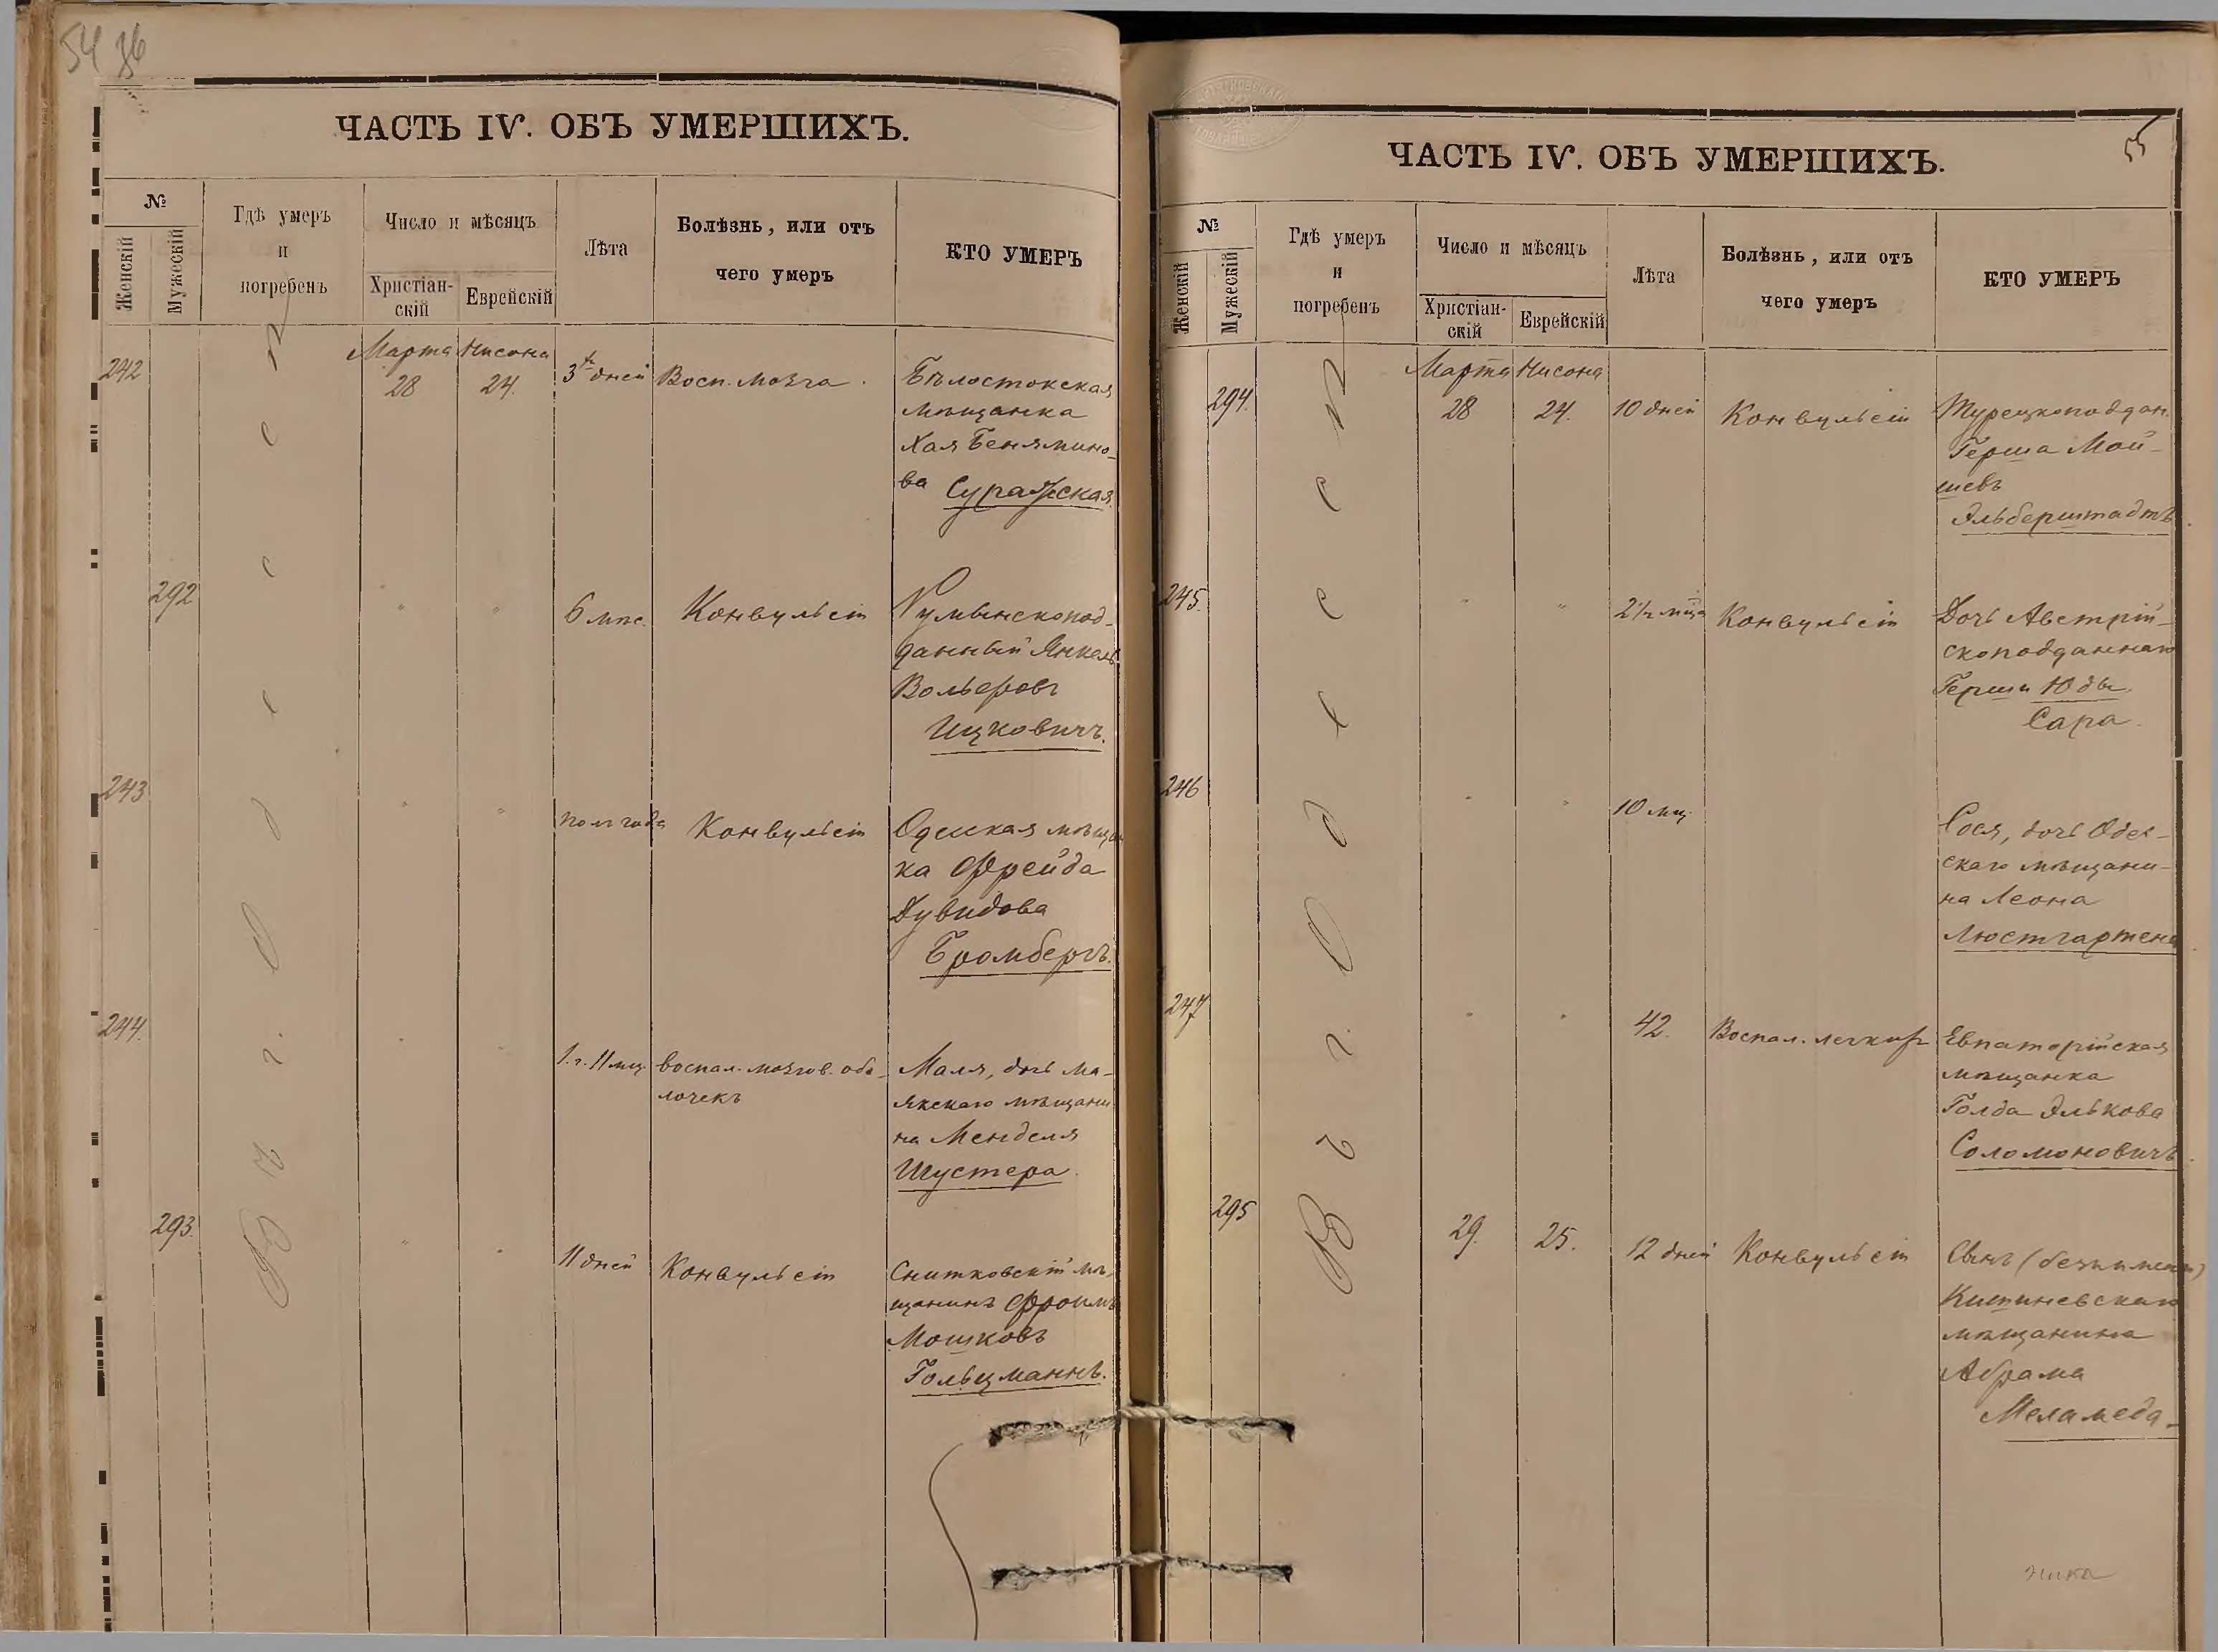 54 36
ЧАСТЬ IV. ОБЪ УМЕРШИХЪ.
№
Женскій
Мужескій
Гдѣ умеръ
и
погребенъ
Число и мѣсяцъ
Христіан-
скій
Еврейскій
Лѣта
Болѣзнь, или отъ
чего умеръ
КТО УМЕРЪ
Въ г. Одессѣ
Марта Нисона
242 28 24. 3х дней Восп. мозга. Бѣлостокская
мѣщанка
Хая Бенямино-
ва Суражская
292 " " 6 мѣс. Конвульсіи Румынскопод-
данный Янкель
Вольфовъ
Ицковичъ.
243 " " полгода Конвульсіи Одесская мѣщан
ка Фрейда
Дувидова
Бромбергъ.
244. " " 1.г. 11 мц. воспал. мозгов. обо-
лочекъ
Маля, дочь ма-
якскаго мѣщани
на Менделя
Шустера.
293. " " 11 дней Конвульсіи Снитковскій мѣ-
щанинъ Фроимъ
Мошковъ
Гольцманнъ.
55
ЧАСТЬ IV. ОБЪ УМЕРШИХЪ.
№
Женскій
Мужескій
Гдѣ умеръ
и
погребенъ
Число и мѣсяцъ
Христіан-
скій
Еврейскій
Лѣта
Болѣзнь, или отъ
чего умеръ
КТО УМЕРЪ
Въ г. Одессѣ
Марта Нисона
294. 28 24. 10 дней Конвульсіи Турецкоподдан.
Герша Мой-
шевъ
Эльберштадтъ.
245. " " 2 1/2 мца Конвульсіи Дочь Австрій-
скоподданнаго
Герша Юды
Сара.
246 " " 10 мц. Сося, дочь Одес-
скаго мѣщани-
на Леона
Люстгартена.
247 " " 42. Воспал. легкихъ Евпаторійская
мѣщанка
Голда Элькова
Соломоновичъ.
295 29. 25. 12 дней Конвульсіи Сынъ (безимен)
Кишиневскаго
мѣщанина
Абрама
Меламеда.